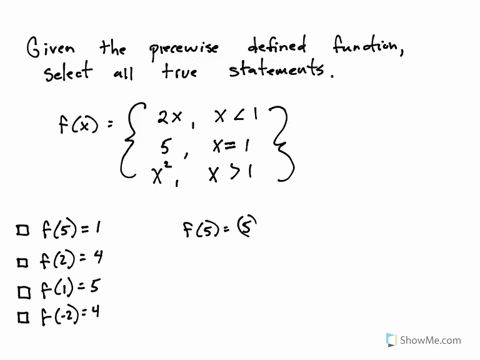 Given the piecewise defined function,
select all true statements.
f(x) = { 2x, x < 1
5, x = 1
x², x > 1 }
□ f(5) = 1
f(5) = (5)
□ f(2) = 4
□ f(1) = 5
□ f(-2) = 4
ShowMe.com